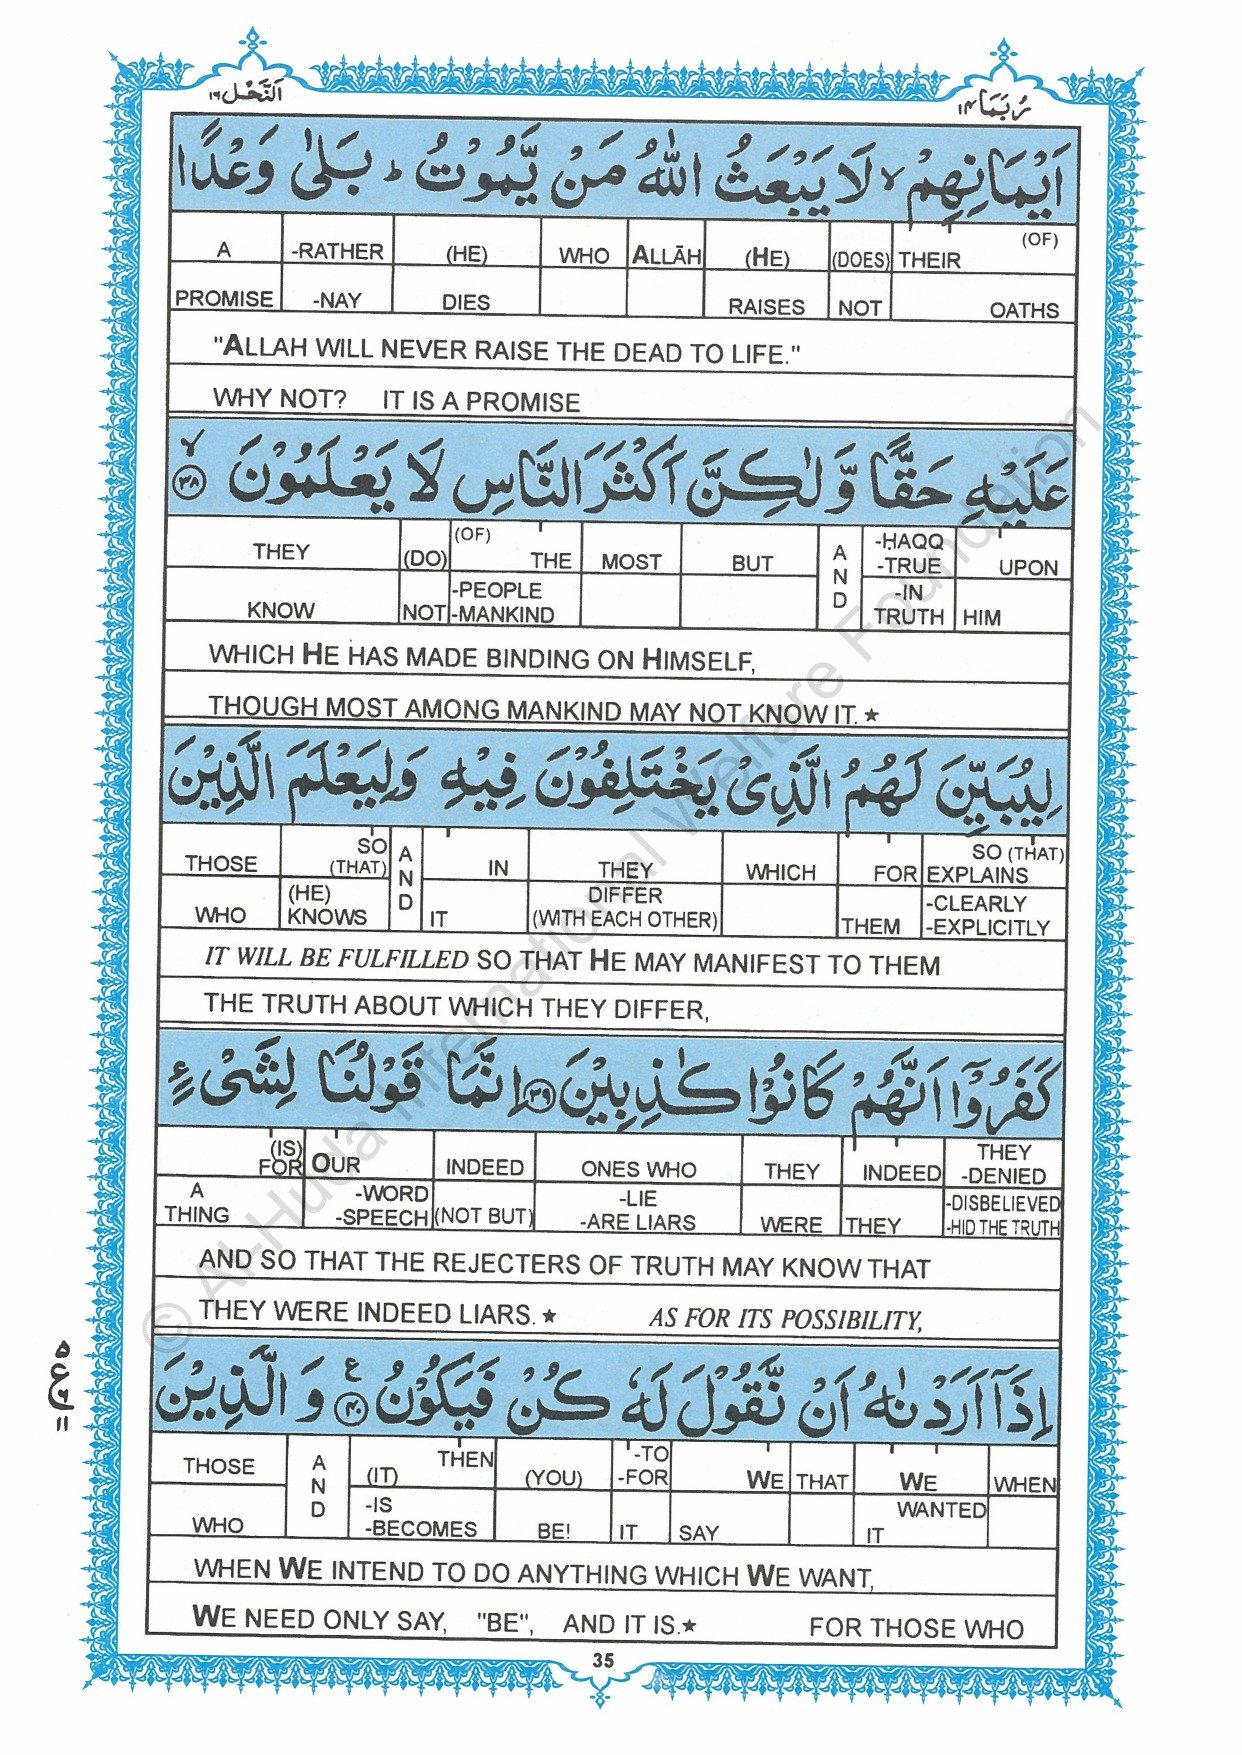 النَّحْل ١٦
رُبَمَا ١٤
اَيْمَانِهِمْ ۙ لَا يَبْعَثُ اللّٰهُ مَنْ يَّمُوْتُ ؕ بَلٰى وَعْدًا
A -RATHER (HE) WHO ALLĀH (HE) (DOES) THEIR (OF)
PROMISE -NAY DIES RAISES NOT OATHS
"ALLAH WILL NEVER RAISE THE DEAD TO LIFE."
WHY NOT? IT IS A PROMISE
عَلَيْهِ حَقًّا وَّلٰكِنَّ اَكْثَرَ النَّاسِ لَا يَعْلَمُوْنَ ۙ ﴿٣٨﴾
THEY (DO) (OF) THE MOST BUT AND -ḤAQQ -TRUE UPON
KNOW NOT -PEOPLE -MANKIND -IN TRUTH HIM
WHICH HE HAS MADE BINDING ON HIMSELF,
THOUGH MOST AMONG MANKIND MAY NOT KNOW IT. ★
لِيُبَيِّنَ لَهُمُ الَّذِىْ يَخْتَلِفُوْنَ فِيْهِ وَلِيَعْلَمَ الَّذِيْنَ
THOSE SO (THAT) AND IN THEY WHICH FOR SO (THAT) EXPLAINS
WHO (HE) KNOWS IT DIFFER (WITH EACH OTHER) THEM -CLEARLY -EXPLICITLY
IT WILL BE FULFILLED SO THAT HE MAY MANIFEST TO THEM
THE TRUTH ABOUT WHICH THEY DIFFER,
كَفَرُوْۤا اَنَّهُمْ كَانُوْا كٰذِبِيْنَ ﴿٣٩﴾ اِنَّمَا قَوْلُنَا لِشَىْءٍ
(IS) FOR OUR INDEED ONES WHO THEY INDEED THEY -DENIED
A THING -WORD -SPEECH (NOT BUT) -LIE -ARE LIARS WERE THEY -DISBELIEVED -HID THE TRUTH
AND SO THAT THE REJECTERS OF TRUTH MAY KNOW THAT
THEY WERE INDEED LIARS. ★ AS FOR ITS POSSIBILITY,
اِذَاۤ اَرَدْنٰهُ اَنْ نَّقُوْلَ لَهٗ كُنْ فَيَكُوْنُ ﴿٤٠﴾ ع وَالَّذِيْنَ
THOSE AND THEN (IT) (YOU) -TO -FOR WE THAT WE WHEN
WHO -IS -BECOMES BE! IT SAY WANTED IT
WHEN WE INTEND TO DO ANYTHING WHICH WE WANT,
WE NEED ONLY SAY, "BE", AND IT IS.★ FOR THOSE WHO
35
© Al-Huda International Welfare Foundation